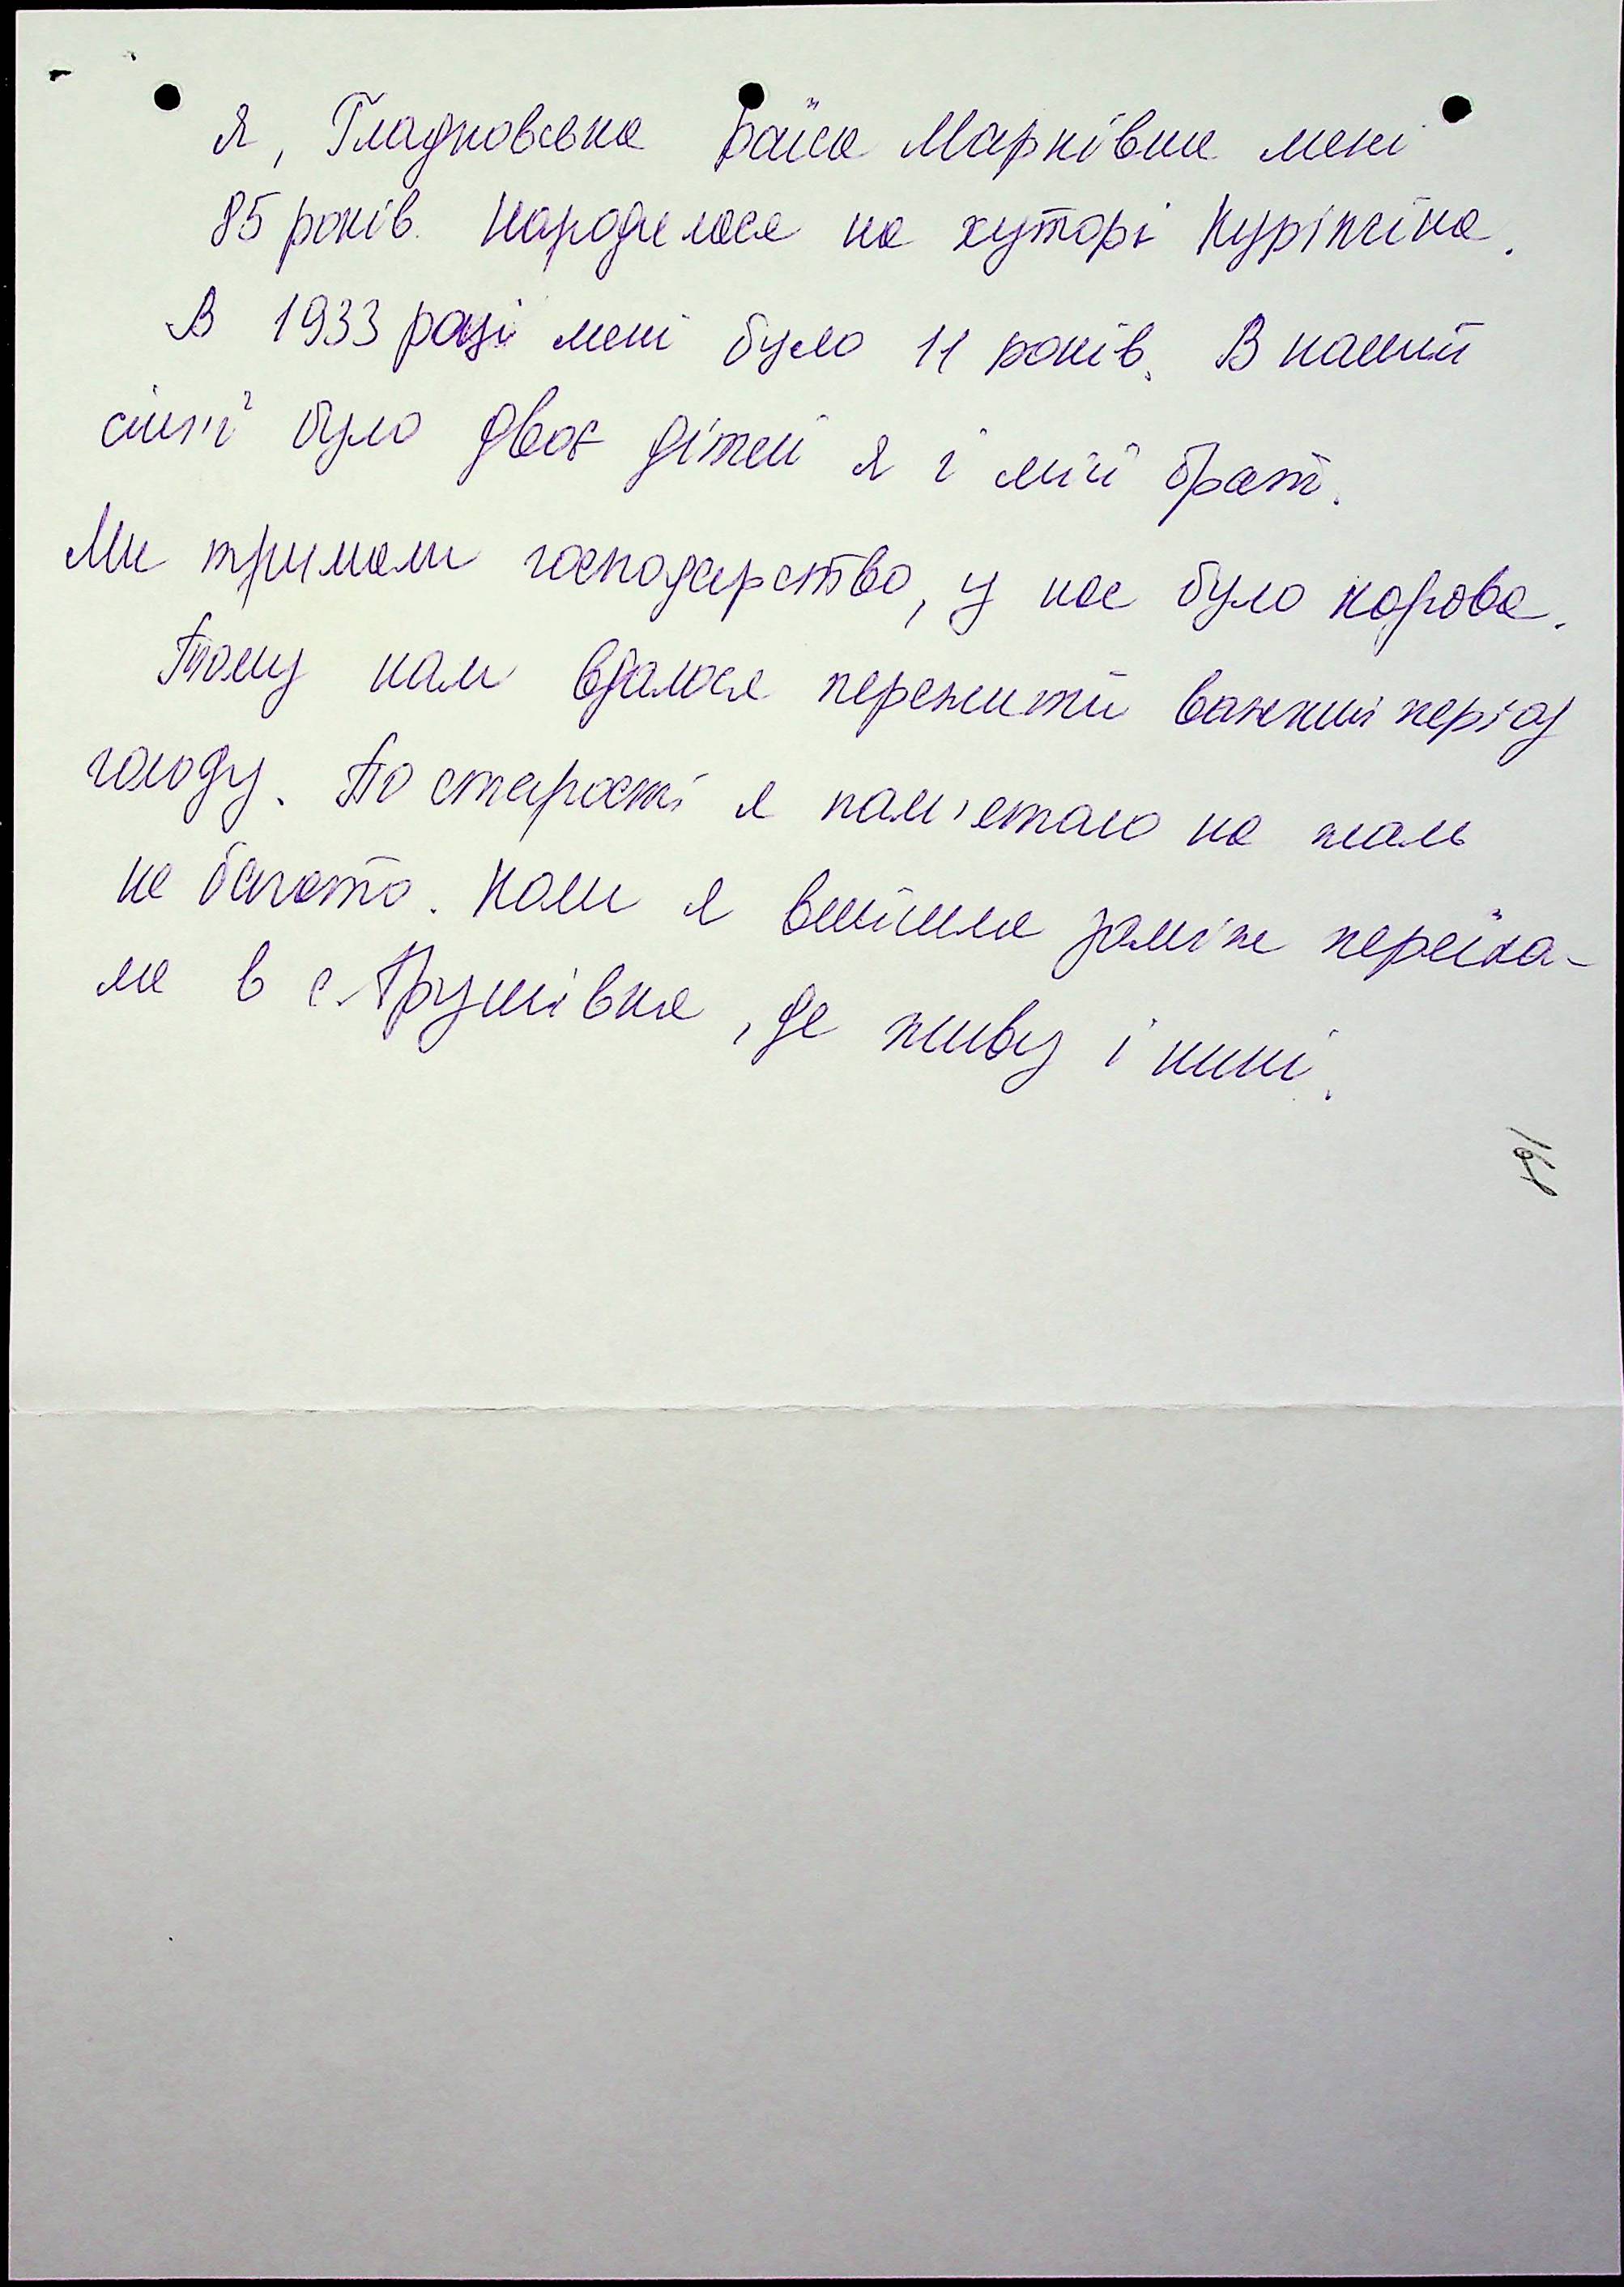 Я, Гладковська Раїса Марківна мені
85 років. Народилася на хуторі Куріпкіна.
В 1933 році мені було 11 років. В нашій
сім'ї було двоє дітей я і мій брат.
Ми тримали господарство, у нас було корова.
Тому нам вдалося пережити важкий період
голоду. По старості я пам'ятаю на жаль
не багато. Коли я вийшла заміж переїха-
ла в с. Ярушівка, де живу і нині.